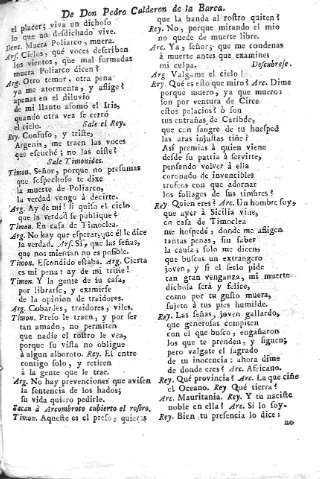 De Don Pedro Calderon de la Barca.
el placer; viva un dichoso
lo que no desdichado vive.
Dent. Muera Poliarco, muera.
Arg. Cielos, què voces describen
los vientos, que mal formadas
muera Poliarco dicen?
Arg. Otro temor, otra pena
ya me atormenta, y aflige?
apenas en el diluvio
de mi llanto asomò el Iris,
quando otra vez se cerrò
el cielo. Sale el Rey.
Rey. Confuso, y triste,
Argenis, me traen las voces
que escuchè; no las oiste?
Sale Timonides.
Timon. Señor, porque no presumas
que sospechoso te dixe
la muerte de Poliarco,
la verdad vengo à decirte.
Arg. Ay de mi! si quiso el cielo
que la verdad se publique?
Timon. En casa de Timoclea
Arg. No hay que esperar, que èl le dice
la verdad. Ars. Sì, que las señas,
que nos mientan no es posible.
Timon. Escondido estaba. Arg. Cierta
es mi pena: ay de mi triste!
Timon. Y la gente de su casa,
por librarse, y eximirse
de la opinion de traidores.
Arg. Cobardes, traidores, viles.
Timon. Preso le traen, y por ser
tan amado, no permiten
que nadie el rostro le vea,
porque su vista no obligue
à algun alboroto. Rey. El entre
contigo solo, y retiren
à la gente que le trae.
Arg. No hay prevenciones que avisen
la sentencia de los hados;
su vida quiero pedirle.
Sacan à Arcombroto cubierto el rostro.
Timon. Aqueste es el preso; quieres
que la banda al rostro quiten?
Rey. No, porque mirando el mio
no quede de muerte libre.
Arc. Ya, señor, que me condenas
à muerte antes que examines
mi culpa. Descubrese.
Arg. Valgame el cielo!
Rey. Què es ello que miro? Arc. Dime
porque muero, ya que muero:
son por ventura de Circe
estos palacios? ò son
tus entrañas de Caribde,
que con sangre de tu huesped
las aras injustas tiñe?
Asi premias à quien viene
desde su patria à servirte,
pensando volver à ella
coronado de invencibles
trofeos con que adornar
los follages de sus timbres?
Rey. Quien eres? Arc. Un hombre soy,
que ayer à Sicilia vine,
en casa de Timoclea
me hospedè, donde me afligen
tantas penas, sin saber
la causa, solo me dicen,
que buscas un extrangero
joven, y si el serlo pide
tan gran venganza, mi muerte
dichosa serà y felice,
como por tu gusto muera,
sujeto à tus pies humilde.
Rey. Las señas, joven gallardo,
que generosas compiten
con el que busco, engañaron
los que te prenden, y siguen;
pero valgate el sagrado
de tu inocencia: ahora dime
de donde eres? Arc. Africano.
Rey. Què provincia? Arc. La que ciñe
el Oceano. Rey. Què tierra?
Arc. Mauritania. Rey. Y tu naciste
noble en ella? Arc. Si lo soy.
Rey. Bien tu presencia lo dice;
no